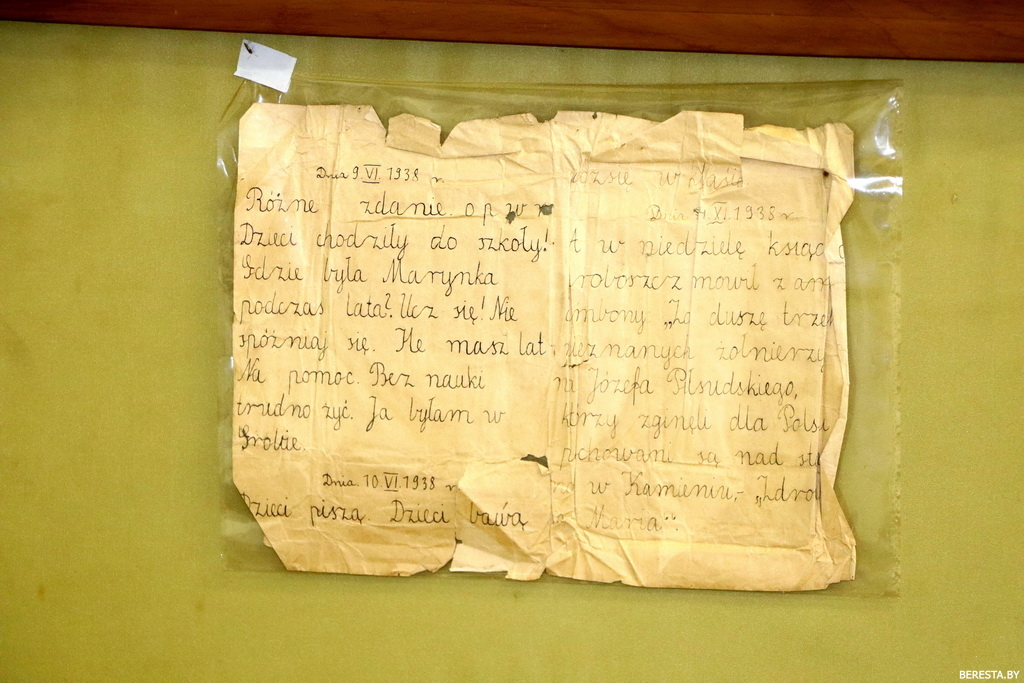 Dnia 9.VI.1938 r.
Różne zdanie.
Dzieci chodziły do szkoły!
Gdzie była Marynka
podczas lata? Ucz się! Nie
spóźniaj się. Ile masz lat
Na pomoc. Bez nauki
trudno żyć. Ja byłam w
Dnia 10 VI.1938 r.
Dzieci piszą. Dzieci bawą
Dnia 11.VI.1938 r.
A w niedzielę
mówił z
ambony: „Za duszę
nieznanych żołnierzy
Józefa Piłsudskiego,
którzy zginęli dla
pochowani są nad
w Kamieniu,- „Zdro
Maria".
BERESTA.BY